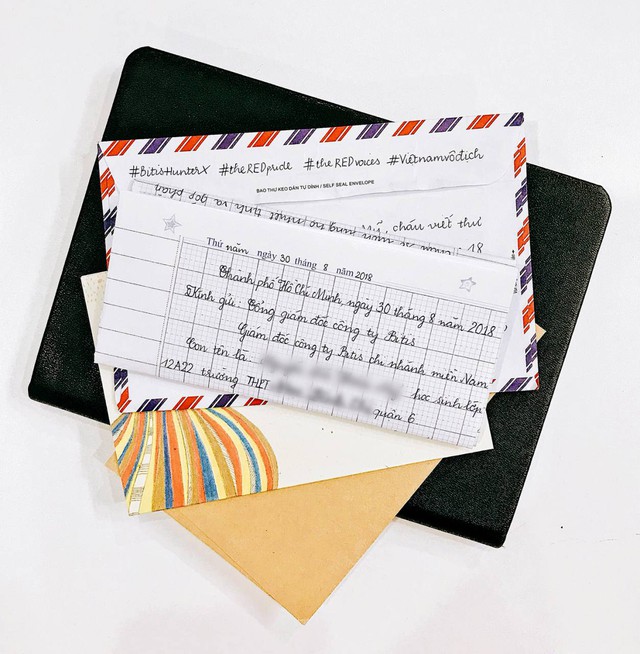 #BitisHunterX #theREDpride #theREDvoices #Vietnamvôđịch
BAO THƯ KEO DÁN TỰ DÍNH / SELF SEAL ENVELOPE
cháu viết thư
18
Thứ năm ngày 30 tháng 8 năm 2018
Thành phố Hồ Chí Minh, ngày 30 tháng 8 năm 2018
Kính gửi: Tổng giám đốc công ty Bitis
Giám đốc công ty Bitis chi nhánh miền Nam
Con tên là
học sinh lớp
12A22 trường THPT
quận 6